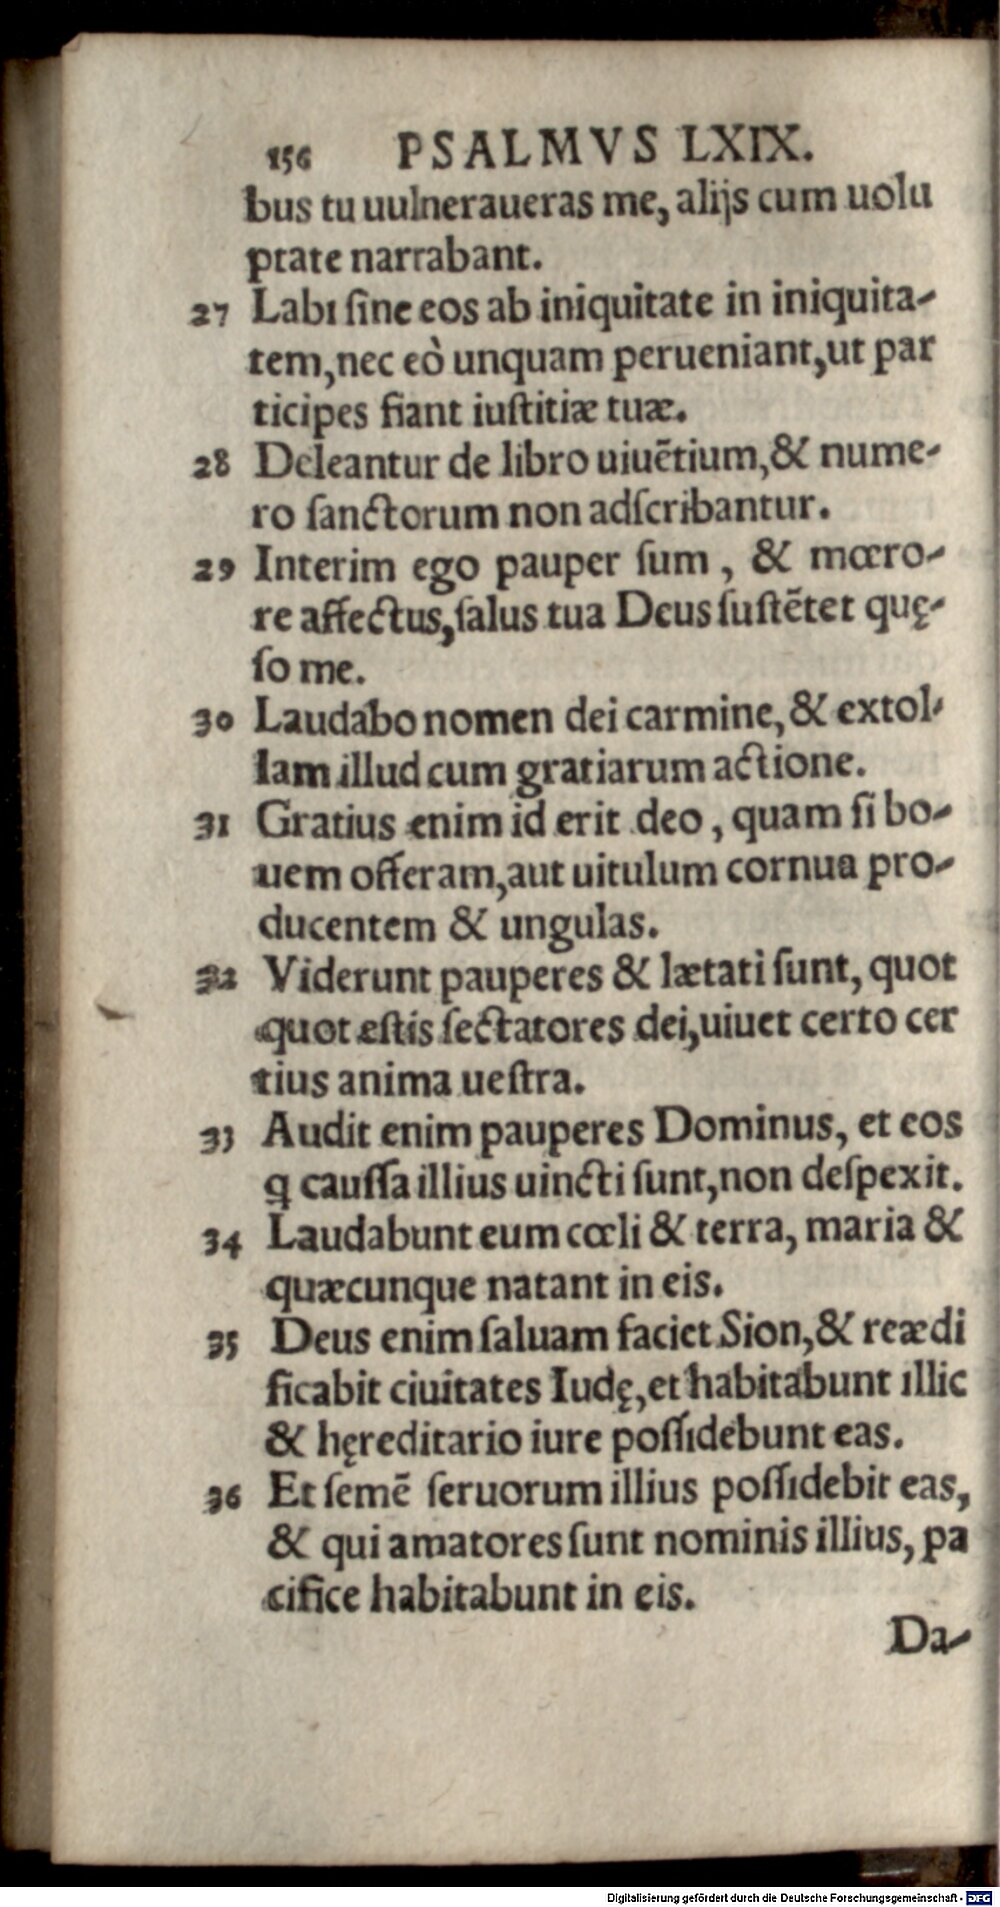 156 PSALMVS LXIX.
bus tu uulneraueras me, alijs cum uolu
ptate narrabant.
27 Labi ſine eos ab iniquitate in iniquita-
tem, nec eò unquam perueniant, ut par
ticipes fiant iuſtitiæ tuæ.
28 Deleantur de libro uiuētium, & nume-
ro ſanctorum non adſcribantur.
29 Interim ego pauper ſum, & mœro-
re affectus, ſalus tua Deus ſuſtētet quę-
ſo me.
30 Laudabo nomen dei carmine, & extol-
lam illud cum gratiarum actione.
31 Gratius enim id erit deo, quam ſi bo-
uem offeram, aut uitulum cornua pro-
ducentem & ungulas.
32 Viderunt pauperes & lætati ſunt, quot
quot eſtis ſectatores dei, uiuet certo cer
tius anima ueſtra.
33 Audit enim pauperes Dominus, et eos
ꝗ cauſſa illius uincti ſunt, non deſpexit.
34 Laudabunt eum cœli & terra, maria &
quæcunque natant in eis.
35 Deus enim ſaluam faciet Sion, & reædi
ficabit ciuitates Iudę, et habitabunt illic
& hęreditario iure poſſidebunt eas.
36 Et ſemē ſeruorum illius poſſidebit eas,
& qui amatores ſunt nominis illius, pa
cifice habitabunt in eis.
Da-
Digitalisierung gefördert durch die Deutsche Forschungsgemeinschaft - DFG